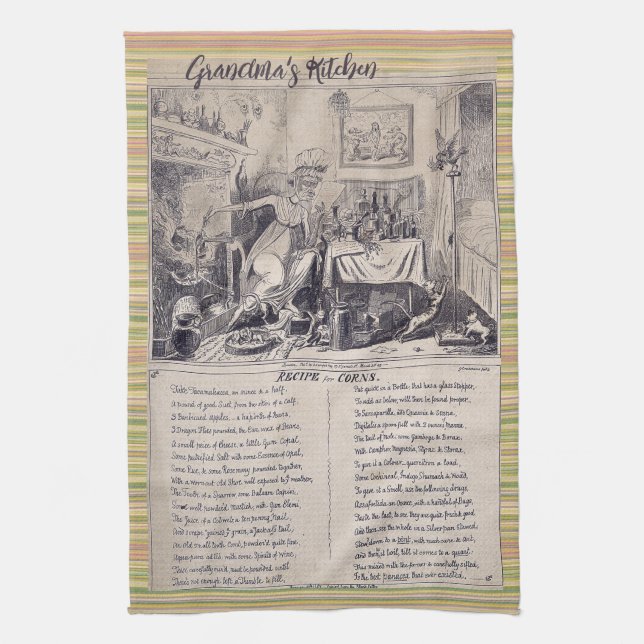 Grandma's Kitchen
RECIPE for CORNS.
Take Tacamahacca, an ounce & a half,
A pound of good Suet from the skin of a calf,
3 Barbicued apples,
3 Dragon Flies pounded, the Ear wax of Bears,
A small piece of cheese, a little Gum Copal,
Some putrified Salt with some Essence of Opal,
Some Rue, & some Rosemary pounded together,
With a worn out old Shoe well exposed to weather,
The Tooth of a Sparrow some Balsam Capivi,
Some well rounded, mastick, with Gum Elemi,
The Juice of a a ten penny Nail,
And scrape 5 grain, a Jackal's Tail,
An old small tooth Comb, powder'd quite fine,
add to, with some Spirits of Wine,
These carefully mix'd must be pounded until
There's not enough left a Thimble to fill,
Put quick in a Bottle that has a glass Stopper,
To add as below, will then be found proper
To Sarsaparilla, add Quassia & Senna,
Digitalis a spoon full with 2 ounces Manna,
The Tail of Mole, some Gamboge & Borax,
With Canthar: Magnesia, Styrax & Storax,
To give it a Colour, quercitron a load,
Some Cochineal, Indigo Shumach & Woad,
To give it a Smell, use the following drugs,
Assafoetida an Ounce, with a handful of Bugs,
Taste the last, to see they are quite fresh & good
And then stew the whole in a Silver pan Stewed,
Stew down to a pint, with much care to boil,
and boil, till it comes to a quart.
Then mixed with the former & carefully sifted,
To the best panacea that ever existed,